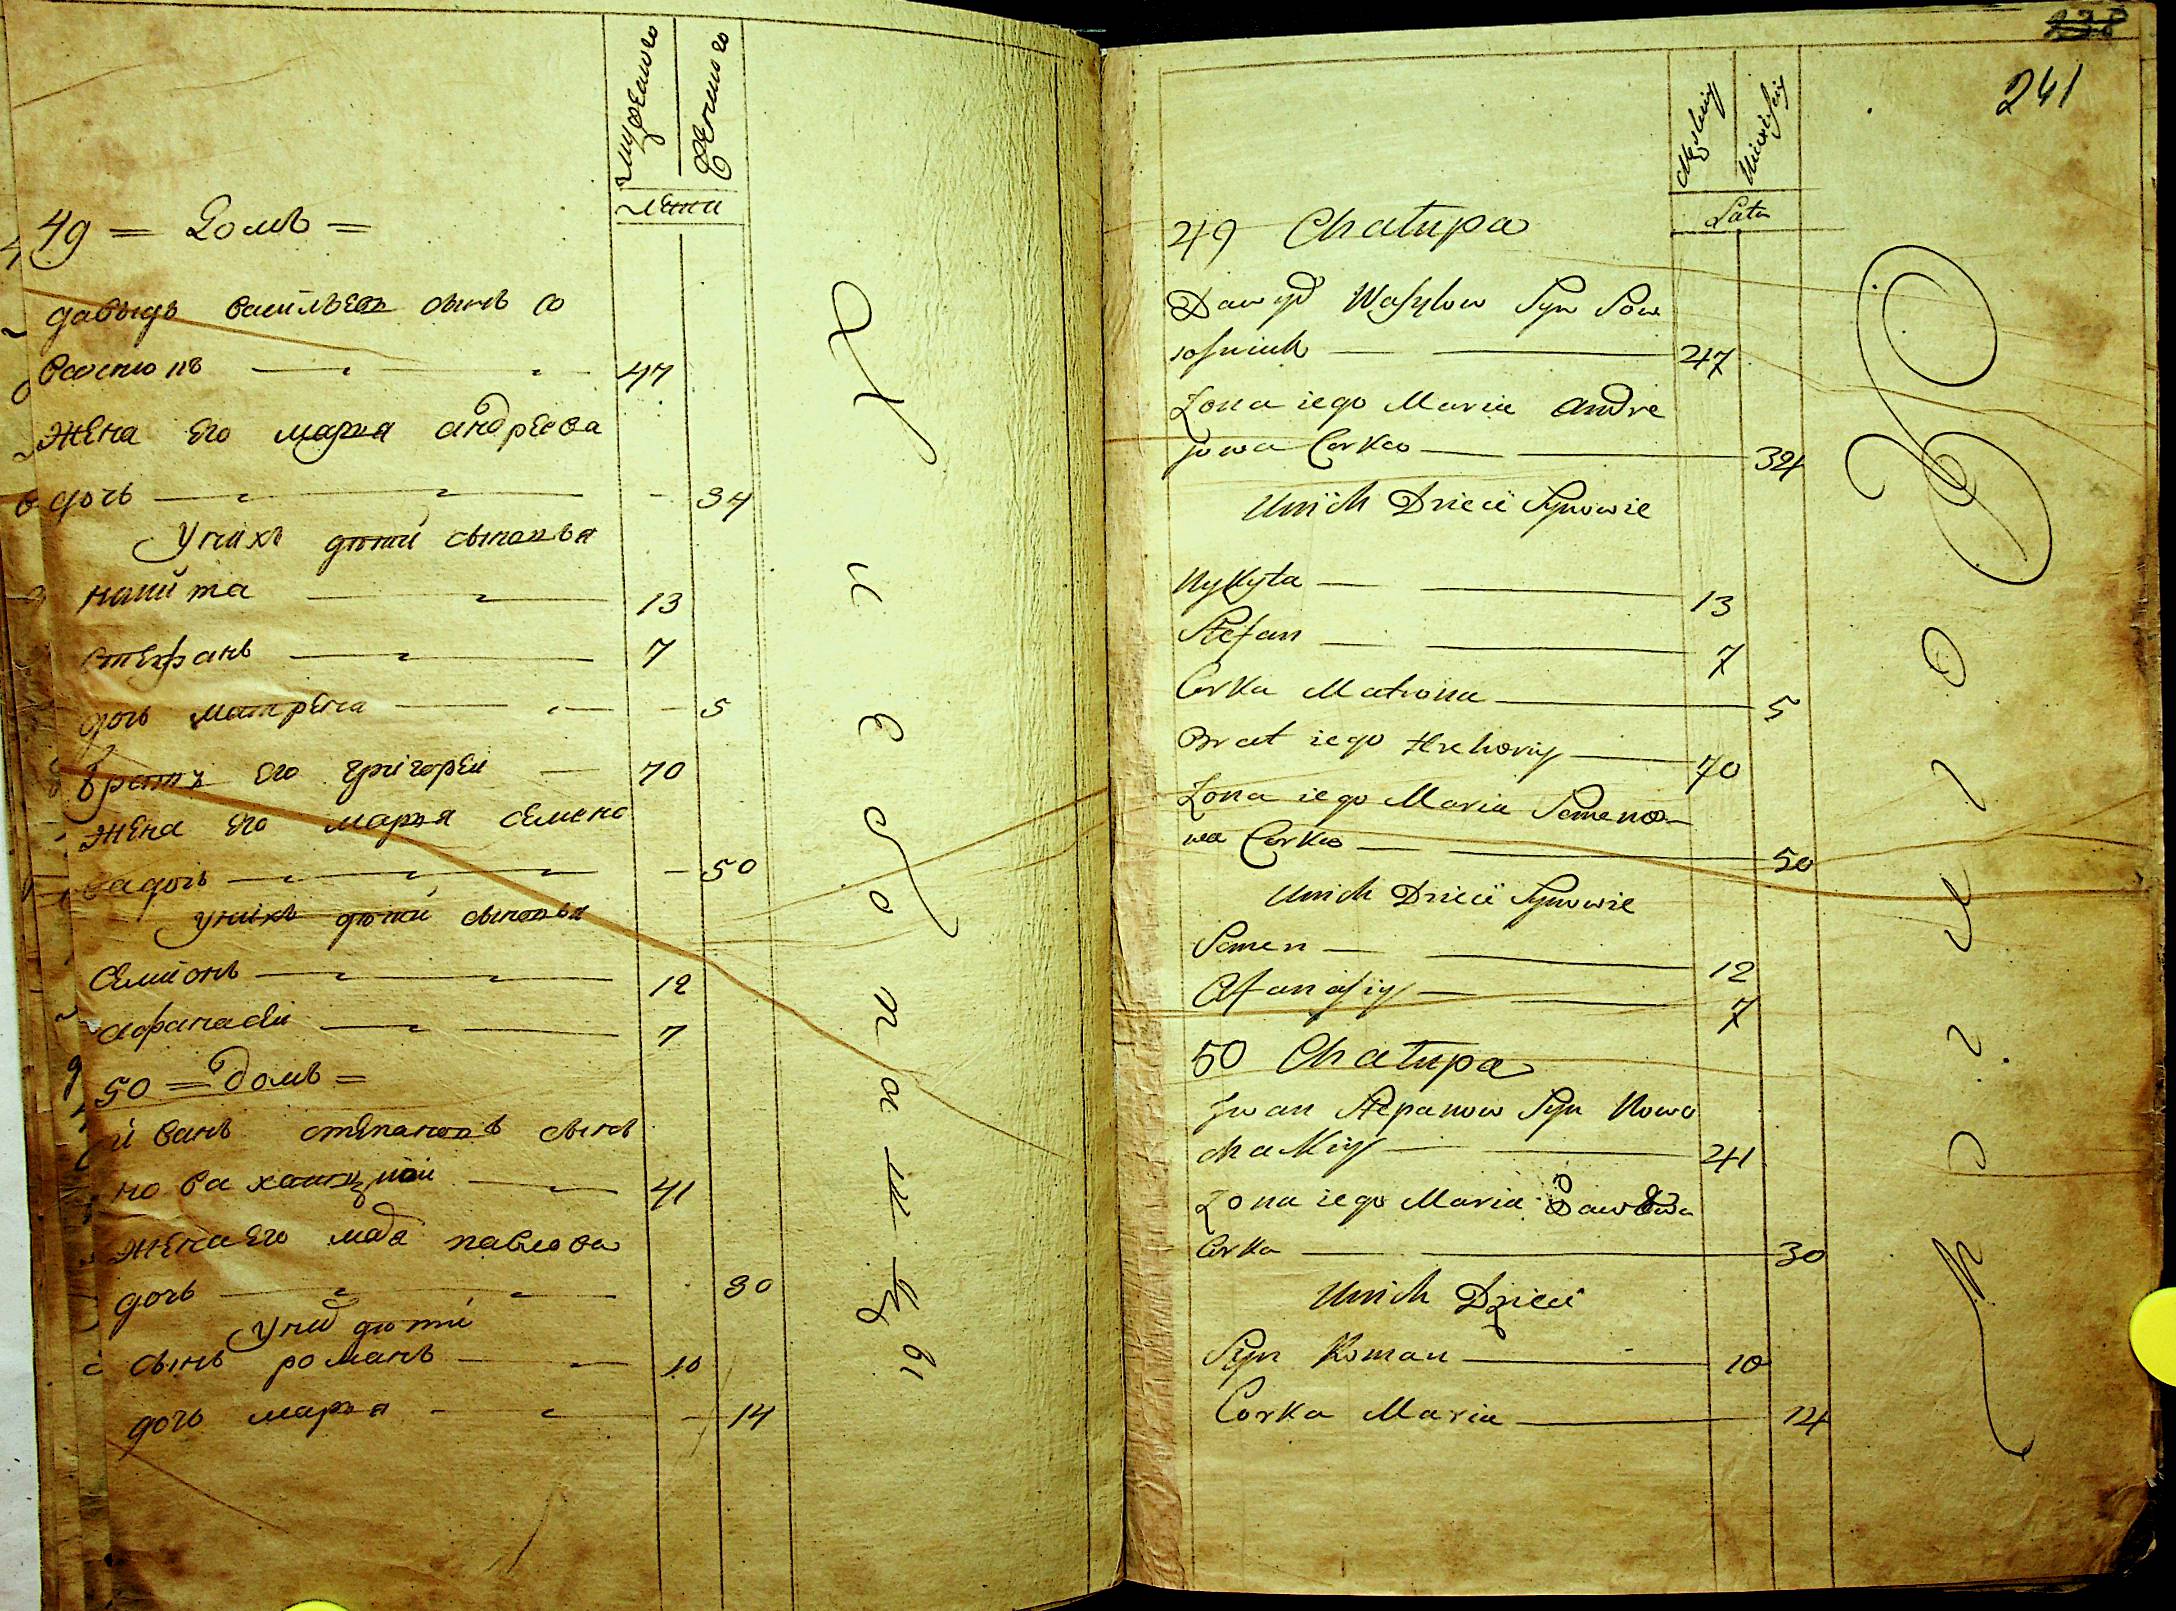 мужескаго
женскаго
лѣта
49 = Домъ =
давыдъ васильевъ сынъ со
вастюнъ 47
жена его марья андреева
дочь 34
У нихъ дѣти сыновья
никита 13
стефанъ 7
дочь матрена 5
братъ его григореи 70
жена его марья семено
ва дочь 50
у нихъ дѣти сыновья
семионъ 12
афанасеи 7
50 = домъ =
иванъ степановъ сынъ
41
жена его павлова
дочь 30
У них дѣти
сынъ романъ 10
дочь марья 14
238
241
Męskiey
Niewieściey
Lata
49 Chałupa
Dawyd Wasylow Syn Sow
47
Zona iego Maria Andre
jowa Corka 34
U nich Dzieci Synowie
Nykyta 13
Stefan 7
Corka Matrona 5
Brat iego Hrehoriy 70
Zona iego Maria Semeno
wa Corka 50
U nich Dzieci Synowie
Semen 12
Afanasiy 7
50 Chałupa
Iwan Stepanow Syn Nowo
chackiy 41
Zona iego Maria
Corka 30
U nich Dzieci
Syn Roman 10
Corka Maria 14